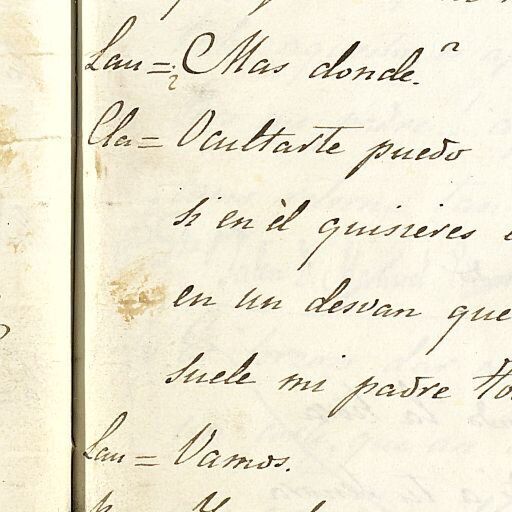 Lau = ¿Mas donde?
Cla = Ocultarte puedo
si en èl quisieres
en un desvan que
suele mi padre
Lau = Vamos.